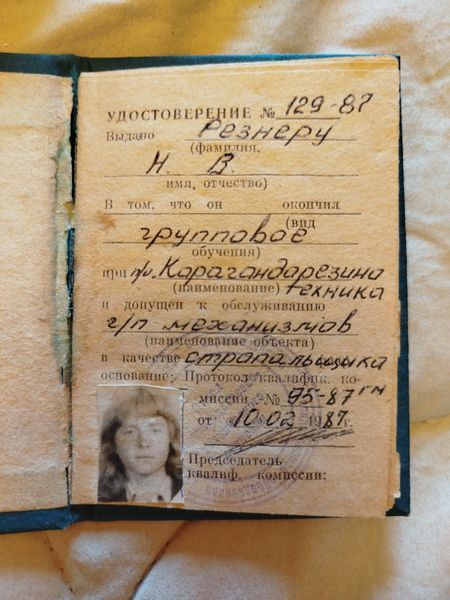 УДОСТОВЕРЕНИЕ № 129-87
Выдано Резнеру
(фамилия,
Н. В.
имя, отчество)
В том, что он окончил
(вид
групповое
обучения)
при п/о Карагандарезино
(наименование) техника
и допущен к обслуживанию
г/п механизмов
(наименование объекта)
в качестве стропальщика
основание: Протокол квалифик. ко-
миссии № 95-87 гн
от 10.02 1987г.
Председатель
квалиф. комиссии: